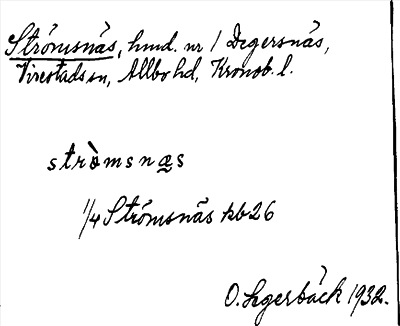 Strömsnäs, hmd. nr 1 Degersnäs,
Virestads sn, Allbo hd, Kronob. l.
strò̀msnæs
1/4 Strömsnäs kb 26
O. Segerbäck 1932.